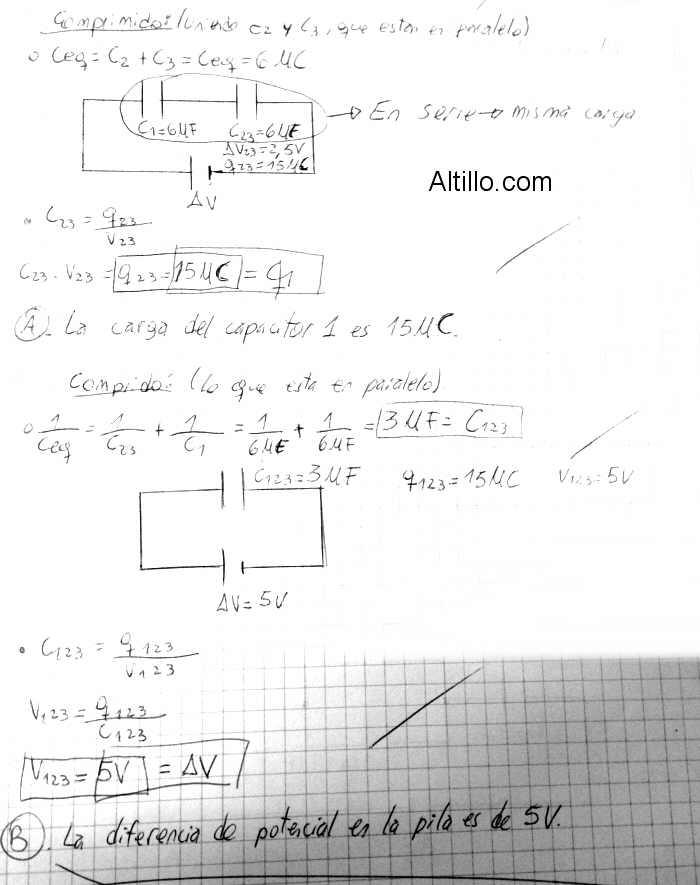 Comprimido: (Uniendo C2 y C3, que estan en paralelo)
o Ceq = C2 + C3 = Ceq = 6 MC
C1=6MF
C23=6MF
→ En serie → misma carga
ΔV23=2,5V
q23=15MC
ΔV
Altillo.com
• C23 = q23/V23
C23 . V23 = q23 = 15MC = q1
A. La carga del capacitor 1 es 15MC.
Comprido: (Lo que esta en paralelo)
o 1/Ceq = 1/C23 + 1/C1 = 1/6MF + 1/6MF = 3MF = C123
C123=3MF q123=15MC V123=5V
ΔV=5V
• C123 = q123/V123
V123 = q123/C123
V123 = 5V = ΔV
B. La diferencia de potencial en la pila es de 5V.